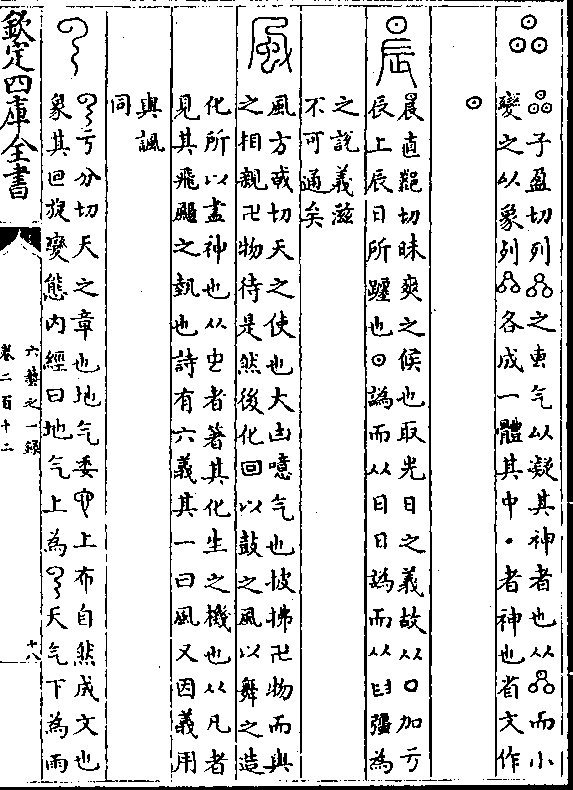 子盈切列之气以凝其神者也从而小
變之以象列各成一體其中・者神也省文作
⊙
晨
晨直切昧爽之候也取光日之義故从口加亏
辰上辰日所躔也⊙譌而从日日譌而从𦥑彊為
之說義滋
不可通矣
風
風方戎切天之使也大凷噫气也披拂卍物而與
之相親卍物待是然後化回以鼓之風以舞之造
化所以盡神也从虫者著其化生之機也从凡者
見其飛颺之埶也詩有六義其一曰風又因義用
與諷
同
亏分切天之章也地气委上布自然成文也
象其回旋變態内經曰地气上為天气下為雨
欽定四庫全書
六藝之一録
卷二百十二
十八